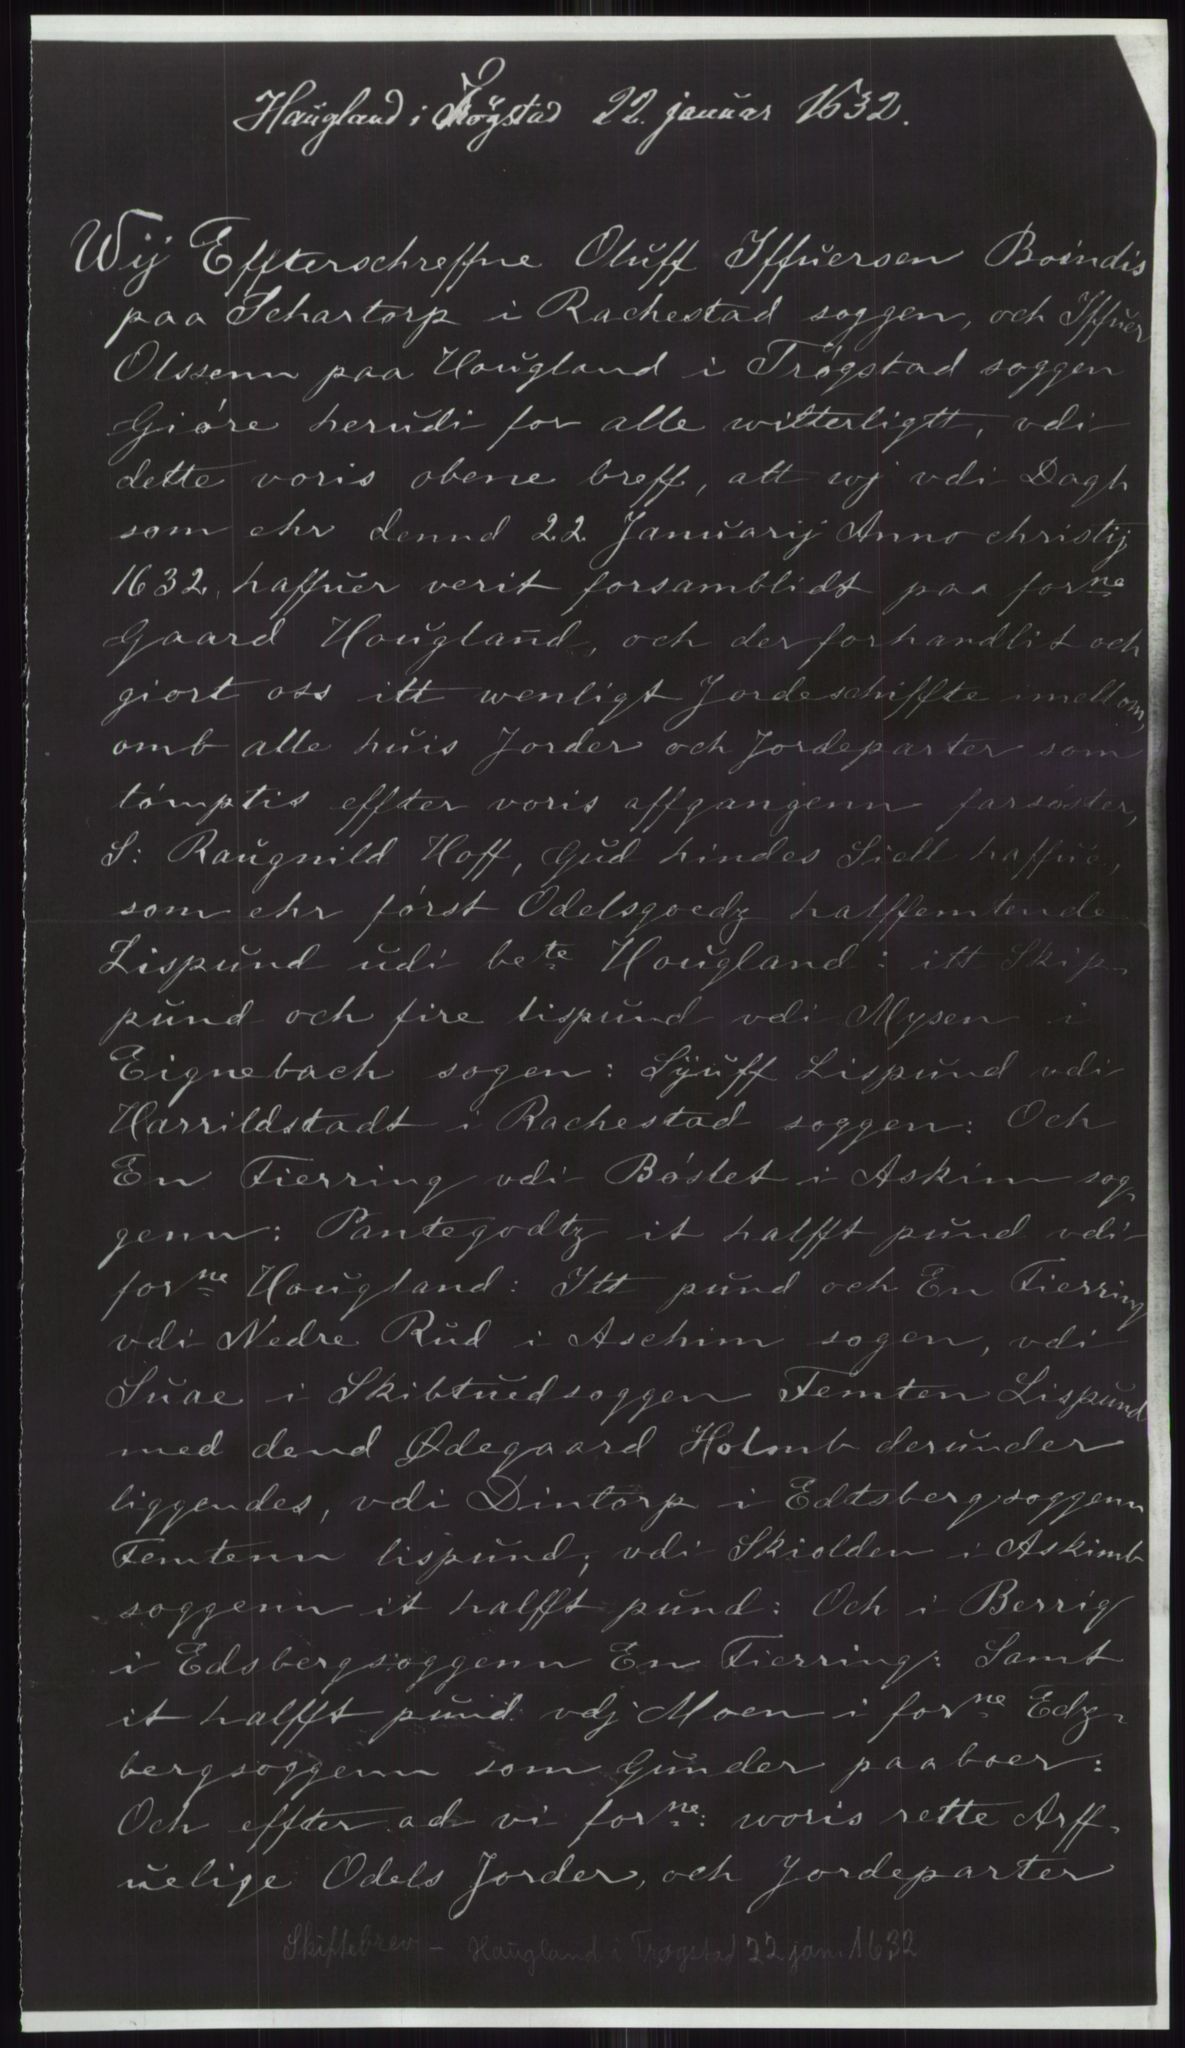 Haugland i Trøgstad 22. januar 1632.
Wij Effterschreffne Oluff Iffuersen Boendis
paa Schartorp i Rachestad soggen, och Iffuer
Olssenn paa Hougland i Trøgstad soggen
Giøre herudi for alle witterligtt, vdi
dette voris obene breff, att wj vdi Dagh
som ehr dennd 22 Januarij Anno christij
1632, haffuer verit forsamblidt paa forne
Gaard Hougland, och der forhandlit och
giort oss itt wenligt Jordeschiffte imellom,
omb alle huis Jorder och Jordeparter som
tømptis effter voris affgangenn farsøster,
S: Raugnild Hoff, Gud hindes Siell haffue,
som ehr først Odelsgoedz halffemtende
Lispund udi bete Hougland: itt Skip-
pund och fire lispund vdi Mysen i
Eignebach sogen: Syuff Lispund vdi
Harrildstadt i Rachestad soggen: Och
En Fierring vdi Bøslet i Askim sog-
genn: Pantegodtz it halfft pund vdi
forne Hougland: Itt pund och En Fierring
vdi Nedre Rud i Aschim sogen, vdi
Suae i Skibtuedsoggen Femten Lispund
med dend Ødegaard Holmb derunder
liggendes, vdi Dintorp i Edtsbergsoggenn
Femtenn lispund; vdi Skiolden i Askimb
soggenn it halfft pund: Och i Berrig
i Edsbergsoggenn En Fierring: Samt
it halfft pund vdj Moen i forne Edz-
bergsoggenn som Gunder paaboer:
Och effter ad vi forne: woris rette Arff-
uelige Odels Jorder, och Jordeparter
Skiftebrev - Haugland i Trøgstad 22 jan. 1632